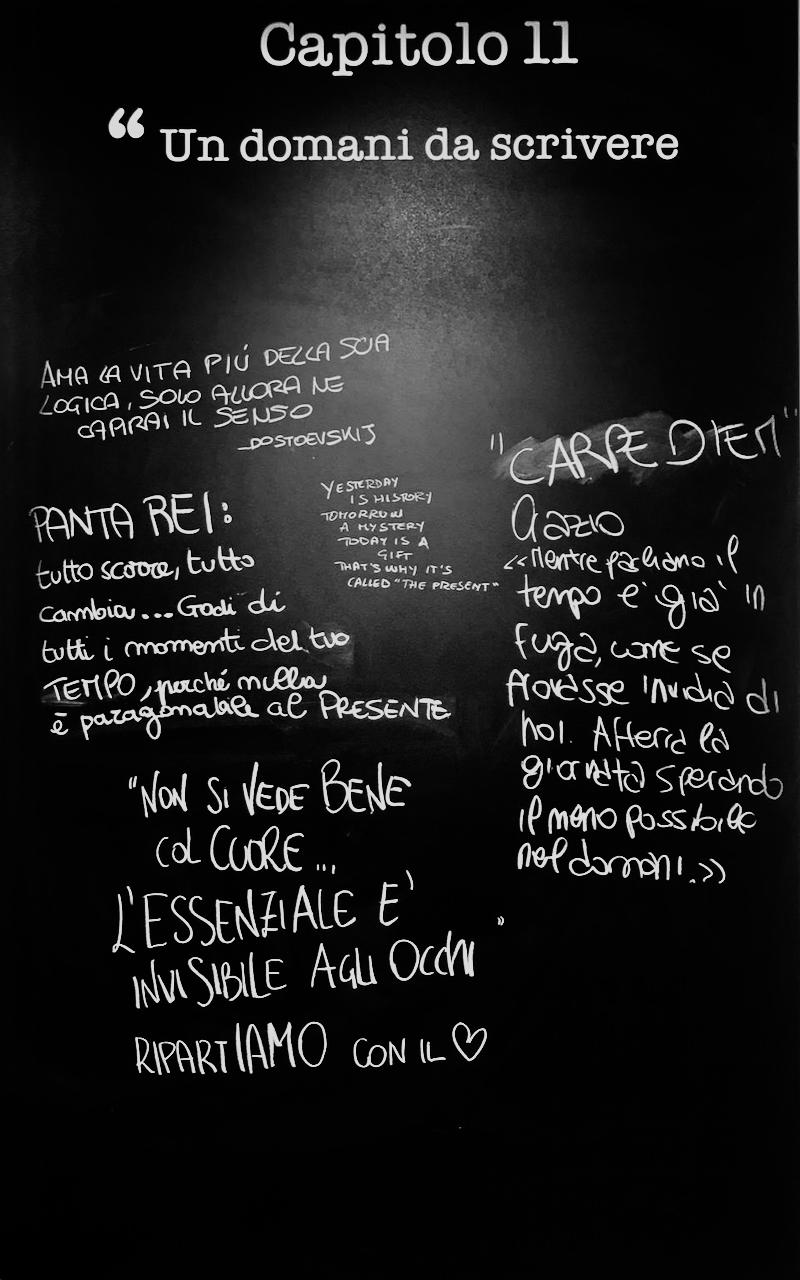 Capitolo 11
“ Un domani da scrivere
AMA LA VITA PIÚ DELLA SUA
LOGICA, SOLO ALLORA NE
CAPIRAI IL SENSO
_DOSTOEVSKIJ
PANTA REI:
tutto scorre, tutto
cambia... Godi di
tutti i momenti del tuo
TEMPO, perché nulla
è paragonabile al PRESENTE
YESTERDAY
IS HISTORY
TOMORROW
A MYSTERY
TODAY IS A
GIFT
THAT'S WHY IT'S
CALLED "THE PRESENT"
"CARPE DIEM"
Orazio
<<Mentre parliamo il
tempo e' già in
fuga, come se
provasse invidia di
noi. Afferra la
giornata sperando
il meno possibile
nel domani.>>
"NON SI VEDE BENE
COL CUORE...
L'ESSENZIALE E'
INVISIBILE AGLI OCCHI"
RIPARTIAMO CON IL ♡